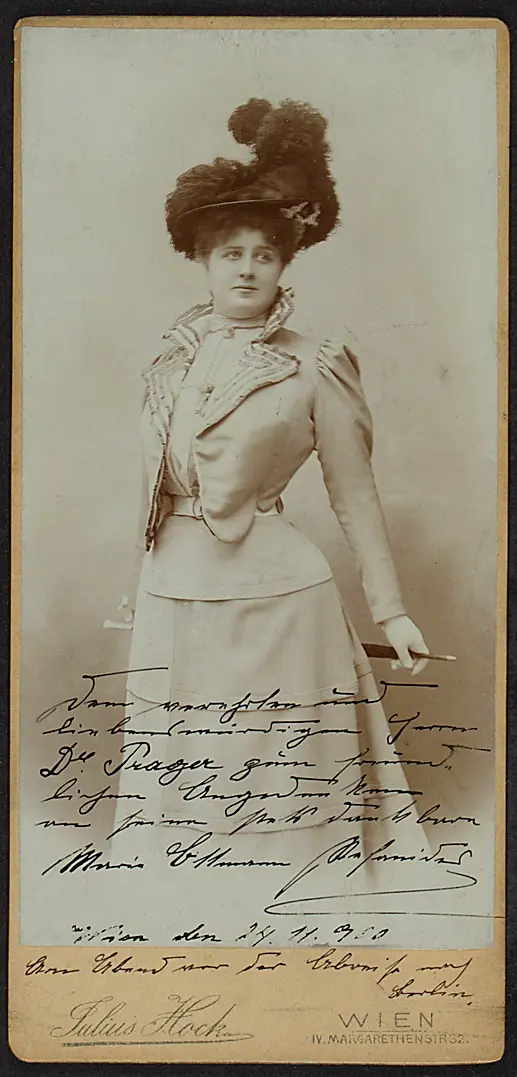 Dem verehrten und
liebenswürdigen Herrn
Dr. Prager zum freund-
lichen Angedenken
an seine stets dankbare
Marie Ottmann
Wien den 24. 11. 900
Am Abend vor der Abreise nach
Berlin.
Julius Hock
WIEN
IV. MARGARETHENSTR 32.